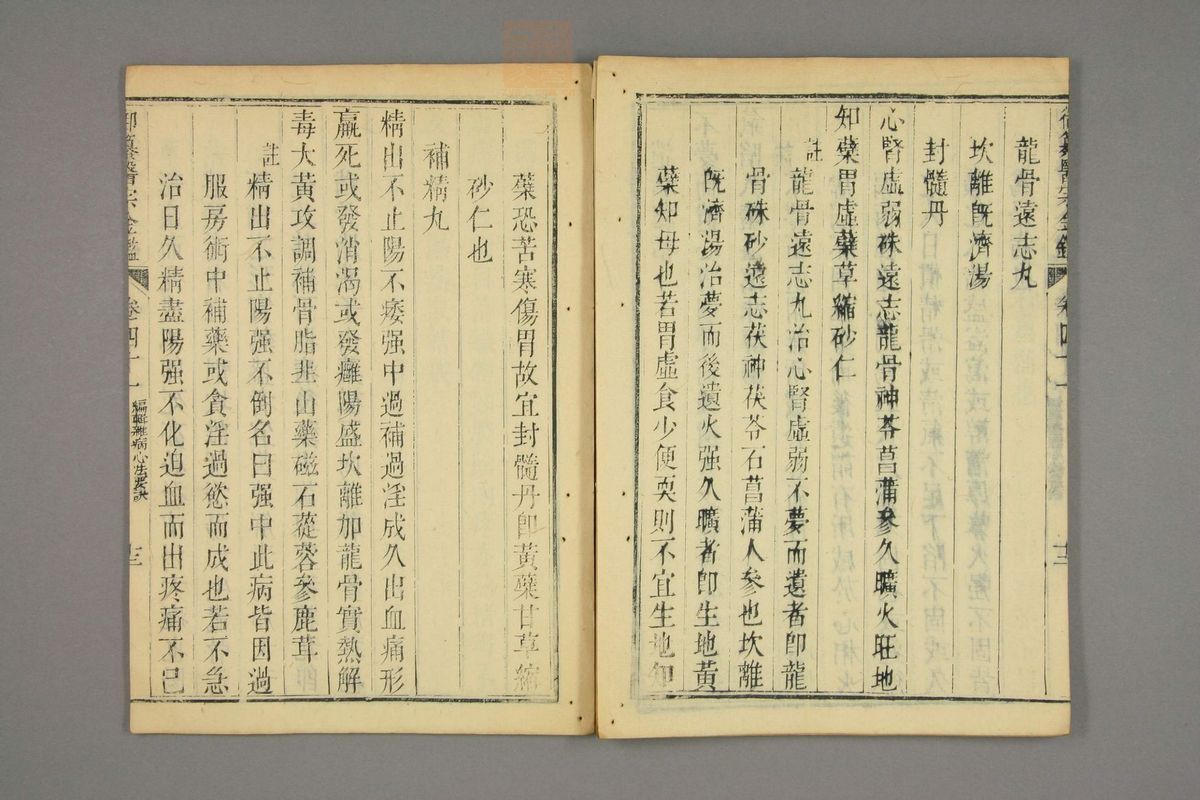 龍骨遠志丸
坎離旣濟湯
封髓丹
心腎虛弱硃遠志龍骨神苓菖蒲參久曠火旺地
知蘗胃虛蘗草縮砂仁
註
龍骨遠志丸治心腎虛弱不夢而遺者卽龍
骨硃砂遠志茯神茯苓石菖蒲人參也坎離
旣濟湯治夢而後遺火强久曠者卽生地黃
蘗知母也若胃虛食少便耎則不宜生地知
蘗恐苦寒傷胃故宜封髓丹卽黃蘗甘草縮
砂仁也
補精丸
精出不止陽不痿强中過補過淫成久出血痛形
羸死或發消渴或發癰陽盛坎離加龍骨實熱解
毒大黃攻調補骨脂韭山藥磁石蓯蓉參鹿茸
註
精出不止陽强不倒名曰强中此病皆因過
服房術中補藥或貪淫過慾而成也若不急
治日久精盡陽强不化迫血而出疼痛不已
御纂醫宗金鑑
卷四十一
編輯雜病心法要訣